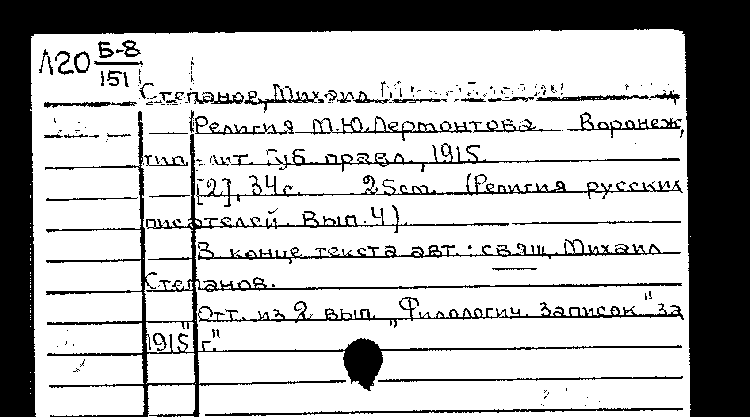 Л20 Б-8
151
Степанов, Михаил
Религия М.Ю. Лермонтова. Воронеж,
тип.-лит. Губ. правл., 1915.
[2], 34 с. 25 см. (Религия русских
писателей. Вып. 4).
В конце текста авт.: свящ. Михаил
Степанов.
Отт. из 2 вып. „Филологич. записок" за
1915 г."